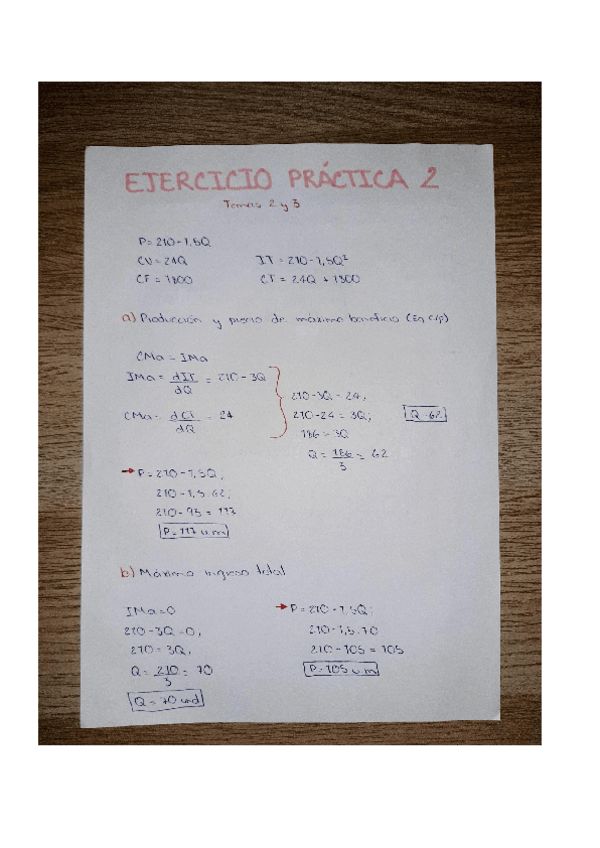 EJERCICIO PRÁCTICA 2
Temas 2 y 3
P = 210 - 1,5Q
CV = 24Q
IT = 210 - 1,5Q²
CF = 1800
CT = 24Q + 1800
a) Producción y precio de máximo beneficio (En c/p)
CMa = IMa
IMa = dIT/dQ = 210 - 3Q
CMa = dCT/dQ = 24
210 - 3Q = 24;
210 - 24 = 3Q;
186 = 3Q
Q = 186/3 = 62
Q = 62
→ P = 210 - 1,5Q;
210 - 1,5·62;
210 - 93 = 117
P = 117 u.m
b) Máximo ingreso total
IMa = 0
210 - 3Q = 0;
210 = 3Q;
Q = 210/3 = 70
Q = 70 und
→ P = 210 - 1,5Q;
210 - 1,5·70
210 - 105 = 105
P = 105 u.m